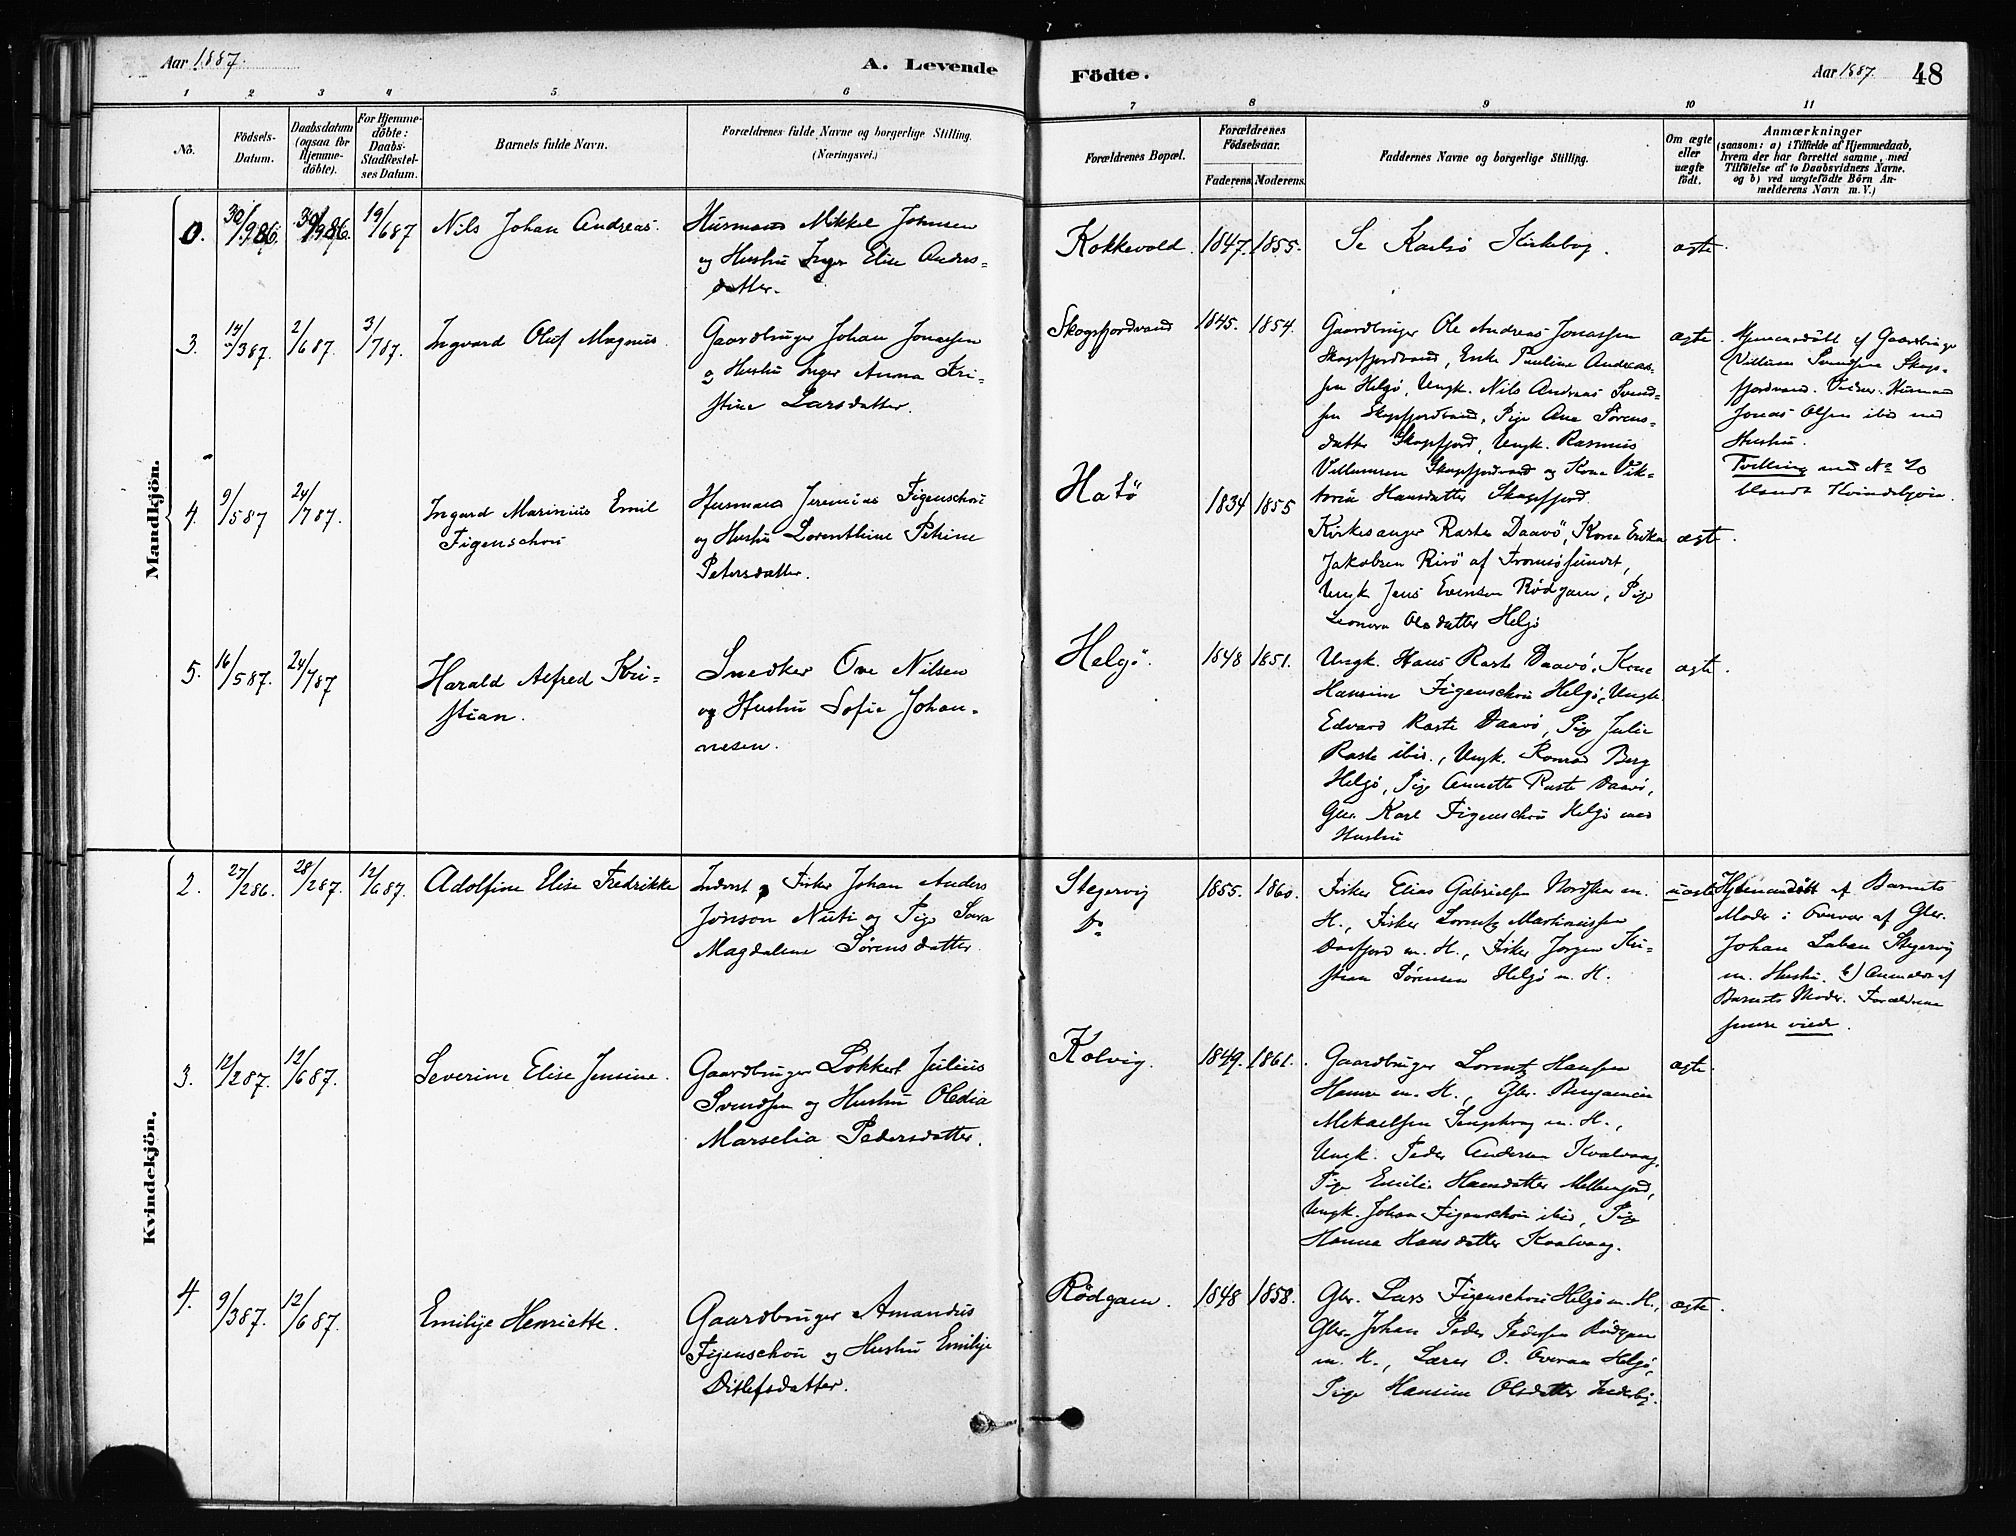 Aar 1887.
A. Levende
Födte.
Aar 1887.
48
1 2 3 4 5 6 7 8 9 10 11
No.
Födsels-
Datum.
Daabsdatum
(ogsaa for
Hjemme-
döbte).
For Hjemme-
döbte:
Daabs-
Stadfestel-
ses Datum.
Barnets fulde Navn.
Forældrenes fulde Navne og borgerlige Stilling.
(Næringsvei.)
Forældrenes Bopæl.
Forældrenes
Födselsaar.
Faderens. Moderens.
Faddernes Navne og borgerlige Stilling.
Om ægte
eller
uægte
födt.
Anmærkninger
(saasom: a) i Tilfælde af Hjemmedaab,
hvem der har forrettet samme, med
Tilföielse af to Daabsvidners Navne.
og b) ved uægtefödte Börn An-
melderens Navn m. V.)
Mandkjön.
0. 30/986. 30/986. 19/687
Nils Johan Andreas.
Husmand Mikkel Johnsen
og Hustru Inger Elise Anders=
datter.
Kokkevold. 1847. 1855.
Se Karlsö Kirkebog.
ægte.
3. 14/387. 2/687. 3/787.
Ingvard Oluf Magnus.
Gaardbruger Johan Jonassen
og Hustru Inger Anna Kri-
stine Larsdatter.
Skogsfjordvand 1845. 1854.
Gaardbruger Ole Andreas Jonassen
Skogsfjordvand, Enke Pauline Andreas-
sen Helgö, Ungk. Nils Andreas Svend-
sen Skogsfjordvand, Pige Ane Sörens-
datter Skogsfjord, Ungk. Rasmus
Villumsen Skogsfjordvand og Kone Vik-
toria Hansdatter Skogsfjord.
ægte.
Hjemmedöbt af Gaardbruger
Villum Svendsen Skogs-
fjordvand. Vidner: Husmand
Jonas Olsen ibid med
Hustru.
Tvilling med No 20
blandt Kvindekjön.
4. 9/587 24/787.
Ingvard Marinius Emil
Figenschou
Husmand Jeremias Figenschou
og Hustru Lorenthine Petrine
Petersdatter.
Hatö 1834 1855
Kirkesanger Raste Daavö, Kone Erika
Jakobsen Risö af Tromsösundet,
Ungk. Jens Evensen Rödgam, Pige
Leonora Olsdatter Helgö
ægte.
5. 16/587. 24/787
Harald Alfred Kri-
stian.
Snedker Ove Nilsen
og Hustru Sofie Johan-
nesen.
Helgö. 1848 1851.
Ungk. Hans Raste Daavö, Kone
Hansine Figenschou Helgö, Ungk.
Edvard Raste Daavö, Pige Julie
Raste ibid., Ungk. Konrad Berg
Helgö, Pige Annette Raste Daavö,
Gbr. Karl Figenschou Helgö med
Hustru
ægte.
Kvindekjön.
2. 27/286. 28/287. 12/687.
Adolfine Elise Fredrikke
Inderst og Fisker Johan Anders
Jonson Nuti og Pige Sara
Magdalene Sörensdatter.
Stegervig
Do
1855. 1860.
Fisker Elias Gabrielsen Nordskar m.
H., Fisker Lorentz Martinussen
Daafjord m. H., Fisker Jörgen Kri-
stian Sörensen Helgö m. H.
uægte
Hjemmedöbt af Barnets
Moder i Overvær af Gbr.
Johan Laban Stegervig
m. Hustru. b) Anmeldt af
Barnets Moder. Forældrene
senere viede.
3. 12/287. 12/687.
Severine Elise Jensine.
Gaardbruger Lökkert Julius
Svendsen og Hustru Oledia
Marselia Pedersdatter.
Kolvig. 1849. 1861.
Gaardbruger Lorentz Hansen
Hamre m. H., Gbr. Benjamin
Mikaelsen m. H.,
Ungk. Peder Andersen Kvalvaag,
Pige Emilie Hansdatter Mellemjord,
Ungk. Johan Figenschou ibid, Pige
Hanna Hansdatter Kvalvaag.
ægte.
4. 9/387. 12/687.
Emilije Henriette.
Gaardbruger Amandus
Figenschou og Hustru Emilije
Ditlefsdatter.
Rödgam. 1848 1858.
Gbr. Lars Figenschou Helgö m. H.,
Gbr. Johan Peder Pedersen Rödgam
m. H., Lærer O. Overaa Helgö,
Pige Hansine Olsdatter Inderby.
ægte.